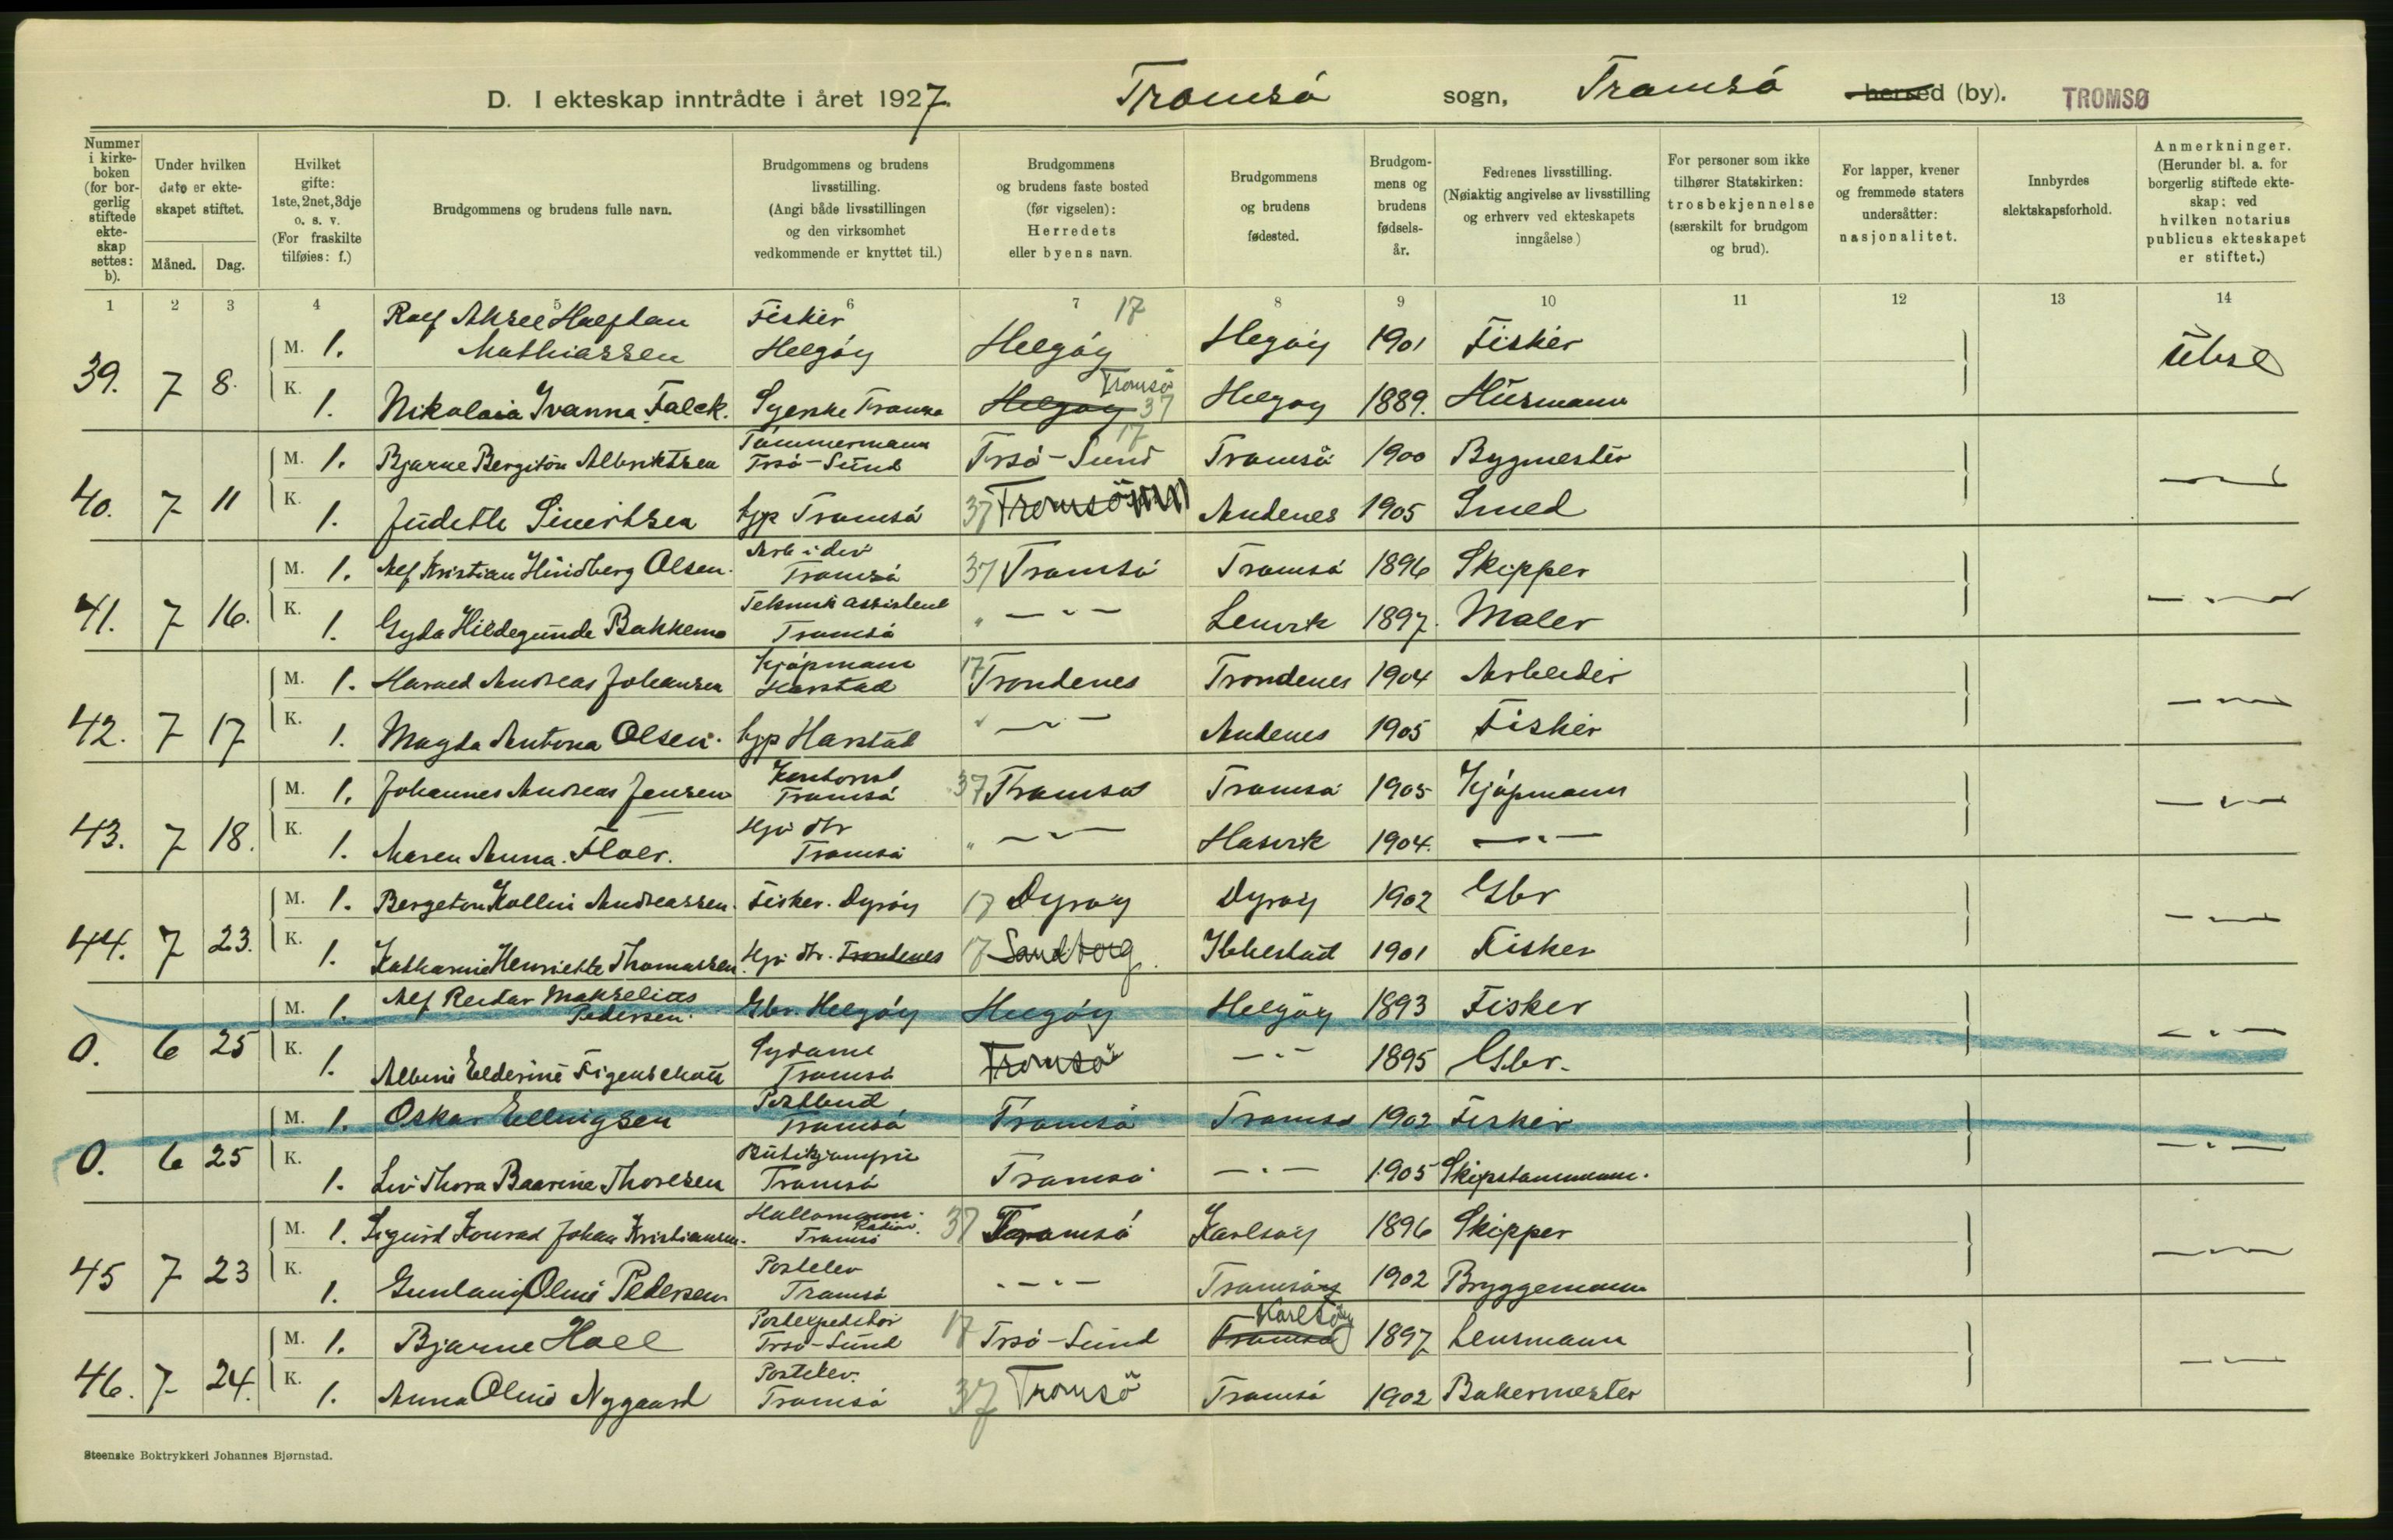 D. I ekteskap inntrådte i året 1927. Tromsö sogn, Tromsö herred (by). TROMSØ
Nummer i kirkeboken (for borgerlig stiftede ekteskap settes: b).
Under hvilken dato er ekteskapet stiftet.
Måned. Dag.
Hvilket gifte: 1ste, 2net, 3dje o. s. v. (For fraskilte tilføies: f.)
Brudgommens og brudens fulle navn.
Brudgommens og brudens livsstilling. (Angi både livsstillingen og den virksomhet vedkommende er knyttet til.)
Brudgommens og brudens faste bosted (før vigselen): Herredets eller byens navn.
Brudgommens og brudens fødested.
Brudgommens og brudens fødselsår.
Fedrenes livsstilling. (Nøiaktig angivelse av livsstilling og erhverv ved ekteskapets inngåelse)
For personer som ikke tilhører Statskirken: trosbekjennelse (særskilt for brudgom og brud).
For lapper, kvener og fremmede staters undersåtter: nasjonalitet.
Innbyrdes slektskapsforhold.
Anmerkninger. (Herunder bl. a. for borgerlig stiftede ekteskap: ved hvilken notarius publicus ekteskapet er stiftet.)
1 2 3 4 5 6 7 8 9 10 11 12 13 14
39. 7 8. M. 1. Rolf Aksel Halfdan Mathiassen Fisker Helgöy 17 Helgöy Helgöy 1901 Fisker
K. 1. Nikolaia Ivanna Falck. Syerske Tromsö Helgöy Tromsö 37 Helgöy 1889. Husmann
40. 7 11 M. 1. Bjarne Bergiton Albriktsen Tömmermann Trsö-Sund 17 Trsö-Sund Tromsö 1900 Bygmester
K. 1. Judith Sivertsen hjp Tromsö 37 Tromsö Andenes 1905 Smed
41. 7 16. M. 1. Alf Kristian Hindberg Olsen. Arbeider Tromsö 37 Tromsö Tromsö 1896 Skipper
K. 1. Gyda Hildegunde Bakkemo Teknisk assistent Tromsö " — " — Lenvik 1897. Maler
42. 7 17 M. 1. Harald Andreas Johansen Kjöpmann Harstad 17 Trondenes Trondenes 1904 Arbeider
K. 1. Magda Antona Olsen. hjp Harstad " — " — Andenes 1905 Fisker
43. 7 18. M. 1. Johannes Andreas Jensen Kontorist Tromsö 37 Tromsö Tromsö 1905 Kjöpmann
K. 1. Maren Anna Floer. Hj. dtr Tromsö " — " — Hasvik 1904. — " —
44. 7 23. M. 1. Bergeton Kollin Andreassen. Fisker. Dyröy 17 Dyröy Dyröy 1902 Gbr
K. 1. Katharine Henriette Thomassen. Hj. dtr. Trondenes 17 Sandtorg. Ibbestad 1901 Fisker
0. 6 25 M. 1. Alf Reidar Makselius Pedersen. Gbr. Helgöy Helgöy Helgöy 1893 Fisker — " —
K. 1. Albine Elderine Figenschau Sydame Tromsö Tromsö — " — 1895 Gbr.
0. 6 25 M. 1. Oskar Ellingsen Postbud Tromsö Tromsö Tromsö 1902 Fisker — " —
K. 1. Liv Thora Baarine Thoresen Butikjomfru Tromsö Tromsö — " — 1905 Skipstømmerm.
45 7 23 M. 1. Sigurd Konrad Johan Kristiansen. Hallomann Radio. Tromsö 37 Tromsö Karlsöy 1896 Skipper
K. 1. Gunlaug Oline Pedersen Postelev Tromsö " — " — Tromsö 1902 Bryggemann
46. 7 24. M. 1. Bjarne Hall Postexpeditör Trsö-Sund 17 Trsö-Sund Tromsö Karlsöy 1897 Lensmann
K. 1. Anna Oline Nygaard Postelev. Tromsö 37 Tromsö Tromsö 1902 Bakermester
Steenske Boktrykkeri Johannes Bjørnstad.